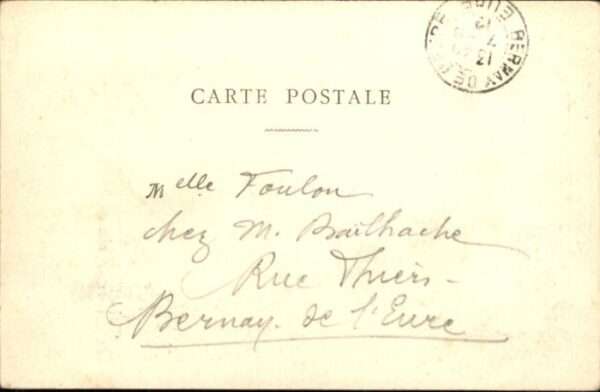 BERNAY DE L'EURE EURE
CARTE POSTALE
Melle Foulon
chez M. Bailhache
Rue Thiers -
Bernay. de l'Eure